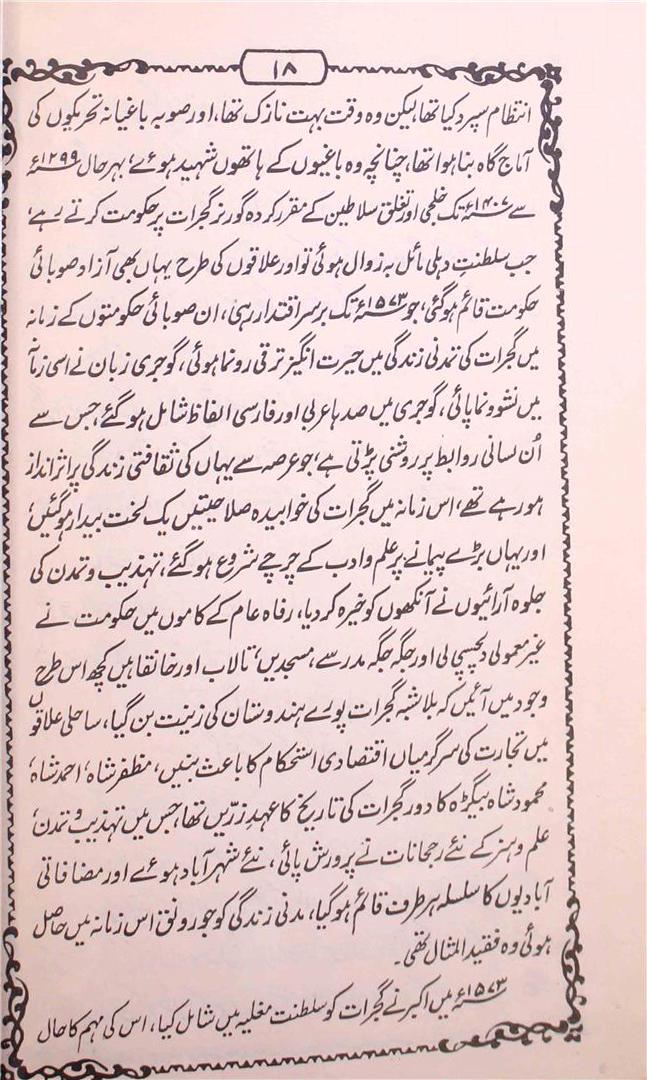 ۱۸
انتظام سپرد کیا تھا، لیکن وہ وقت بہت نازک تھا، اور صوبہ باغیانہ تحریکوں کی
آماج گاہ بنا ہوا تھا، چنانچہ وہ باغیوں کے ہاتھوں شہید ہوئے، بہرحال ۱۲۹۹ء
سے ۱۴۰۷ء تک خلجی اور تغلق سلاطین کے مقرر کردہ گورنر گجرات پر حکومت کرتے رہے،
جب سلطنت دہلی مائل بہ زوال ہوئی تو اور علاقوں کی طرح یہاں بھی آزاد صوبائی
حکومت قائم ہوگئی، جو ۱۵۷۳ء تک برسراقتدار رہی، ان صوبائی حکومتوں کے زمانہ
میں گجرات کی تمدنی زندگی میں حیرت انگیز ترقی رونما ہوئی، گوجری زبان نے اسی زمانہ
میں نشوونما پائی، گوجری میں صدہا عربی اور فارسی الفاظ شامل ہوگئے، جس سے
اُن لسانی روابط پر روشنی پڑتی ہے، جو عرصہ سے یہاں کی ثقافتی زندگی پر اثرانداز
ہو رہے تھے، اس زمانہ میں گجرات کی خوابیدہ صلاحیتیں یک لخت بیدار ہوگئیں،
اور یہاں بڑے پیمانے پر علم و ادب کے چرچے شروع ہوگئے، تہذیب و تمدن کی
جلوہ آرائیوں نے آنکھوں کو خیرہ کردیا، رفاہ عام کے کاموں میں حکومت نے
غیر معمولی دلچسپی لی اور جگہ جگہ مدرسے، مسجدیں، تالاب اور خانقاہیں کچھ اس طرح
وجود میں آئیں کہ بلاشبہ گجرات پورے ہندوستان کی زینت بن گیا، ساحلی علاقوں
میں تجارت کی سرگرمیاں اقتصادی استحکام کا باعث بنیں، مظفر شاہ، احمد شاہ،
محمود شاہ بیگڑہ کا دور گجرات کی تاریخ کا عہدِ زرّیں تھا، جس میں تہذیب و تمدن،
علم و ہنر کے نئے رجحانات نے پرورش پائی، نئے شہر آباد ہوئے اور مضافاتی
آبادیوں کا سلسلہ ہر طرف قائم ہوگیا، مدنی زندگی کو جو رونق اس زمانہ میں حاصل
ہوئی وہ فقید المثال تھی۔
۱۵۷۳ء میں اکبر نے گجرات کو سلطنت مغلیہ میں شامل کیا، اس کی مہم کا حال